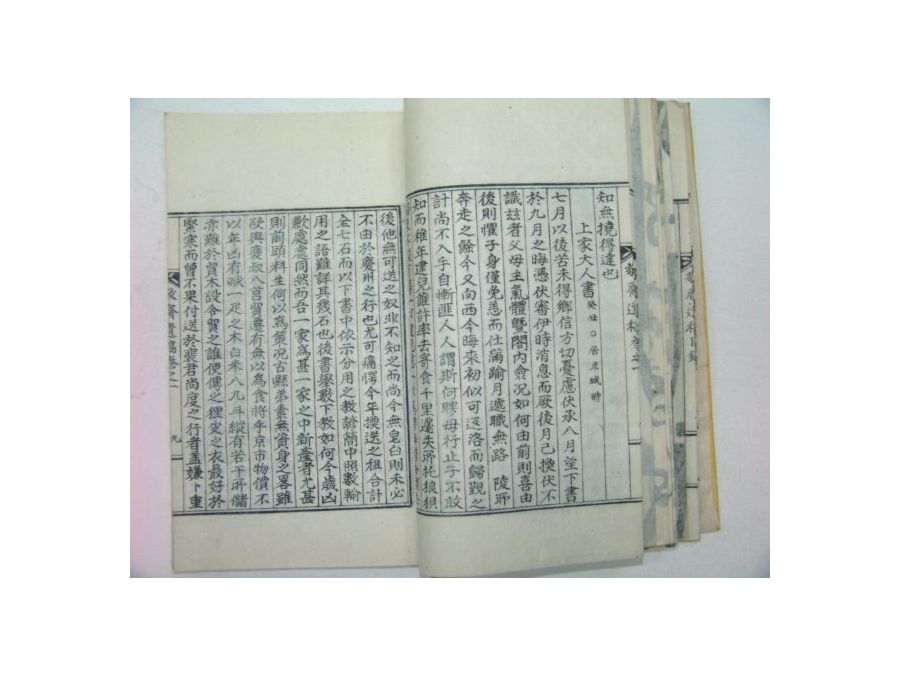 知無撓得達也
上家大人書 癸丑 居京城時
七月以後苦未得鄉信方切憂慮伏承八月望下書
於九月之晦憑伏審伊時消息而厥後月已換伏不
識玆者父母主氣體曁閤內僉況如何由前則喜由
後則懼子身僅免恙而仕滿踰月遞職無路 陵
奔走之餘今又向西今晦來初似可返洛而歸覲之
計尚不入手自慚匪人人謂斯何聘母行止子不敢
知而稚年建兒誰許率去寄食千里邊失所托狼狽
後他無可送之奴非不知之而尚今無皂白則未必
不由於慶州之行也尤可痛愕今年換送之租合計
全七石而以下書中依示分用之敎諺簡中照數輸
用之語難詳其幾石也後書擧數下敎如何今歲凶
歉處處同然而吾一家爲甚一家之中新產者尤甚
則前頭料生何以爲策況古縣弟素無資身之畧雖
欲與裵叔入宮貿遷有無以爲食將乎京市物價不
以年凶有減一疋之木白米八九斗縱有若干所儲
赤難於貿木設令貿之誰使傳之狸皮之衣最好於
緊寒而曾不果付送於裵君尚度之行者盖嫌卜重
敬齋遺稿卷之一
九
敬齋遺稿卷之一
敬齋遺稿目錄